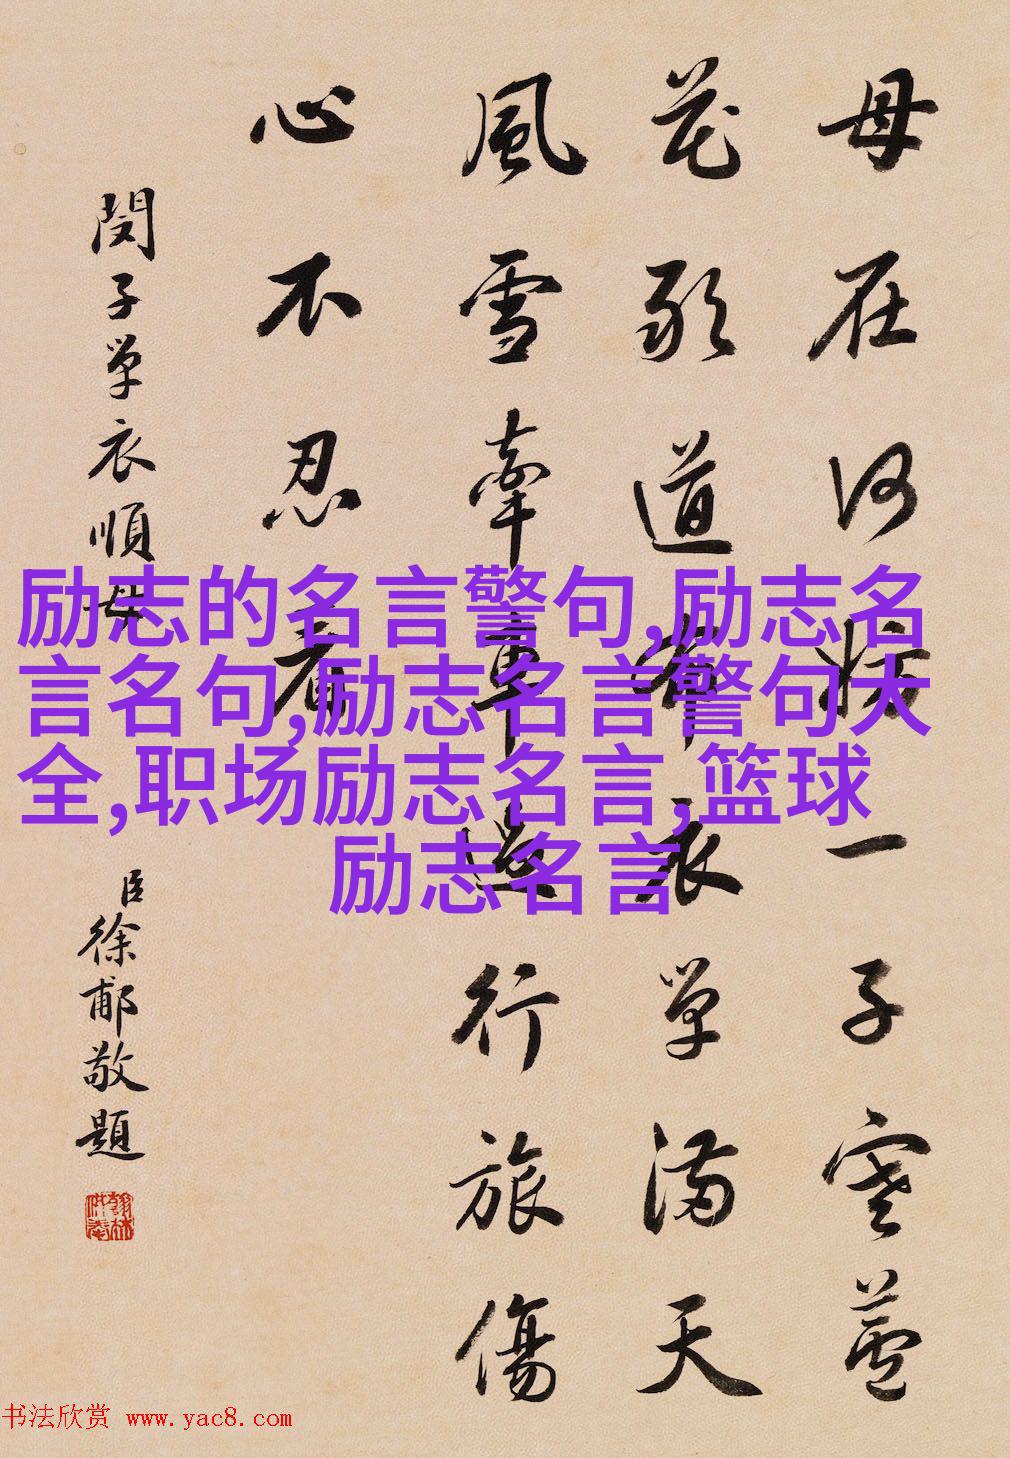 母在何妨一子寒蘆
花敢道布衣單滿天
風雪牽車過行旅傷
心不忍看
閔子單衣順母
臣徐郙敬題
励志的名言警句,励志名
言名句,励志名言警句大
全,职场励志名言,篮球
励志名言
书法欣赏 www.yac8.com